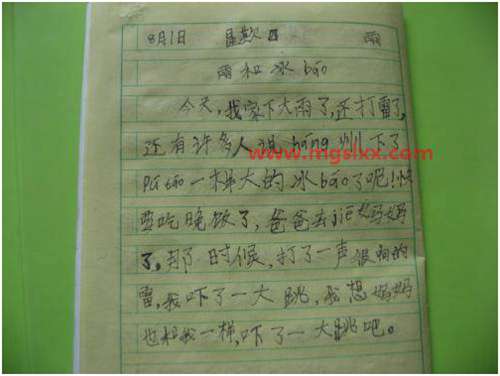 8月1日 星期日 雨
雨和冰báo
今天,我家下大雨了,还打雷了,
还有许多人说bāng 圳下了
pú táo一样大的冰báo了呢!快
要吃晚饭了,爸爸去jiē妈妈
了,那时候,打了一声很响的
雷,我吓了一大跳,我想妈妈
也和我一样,吓了一大跳吧。
www.mgslxx.com